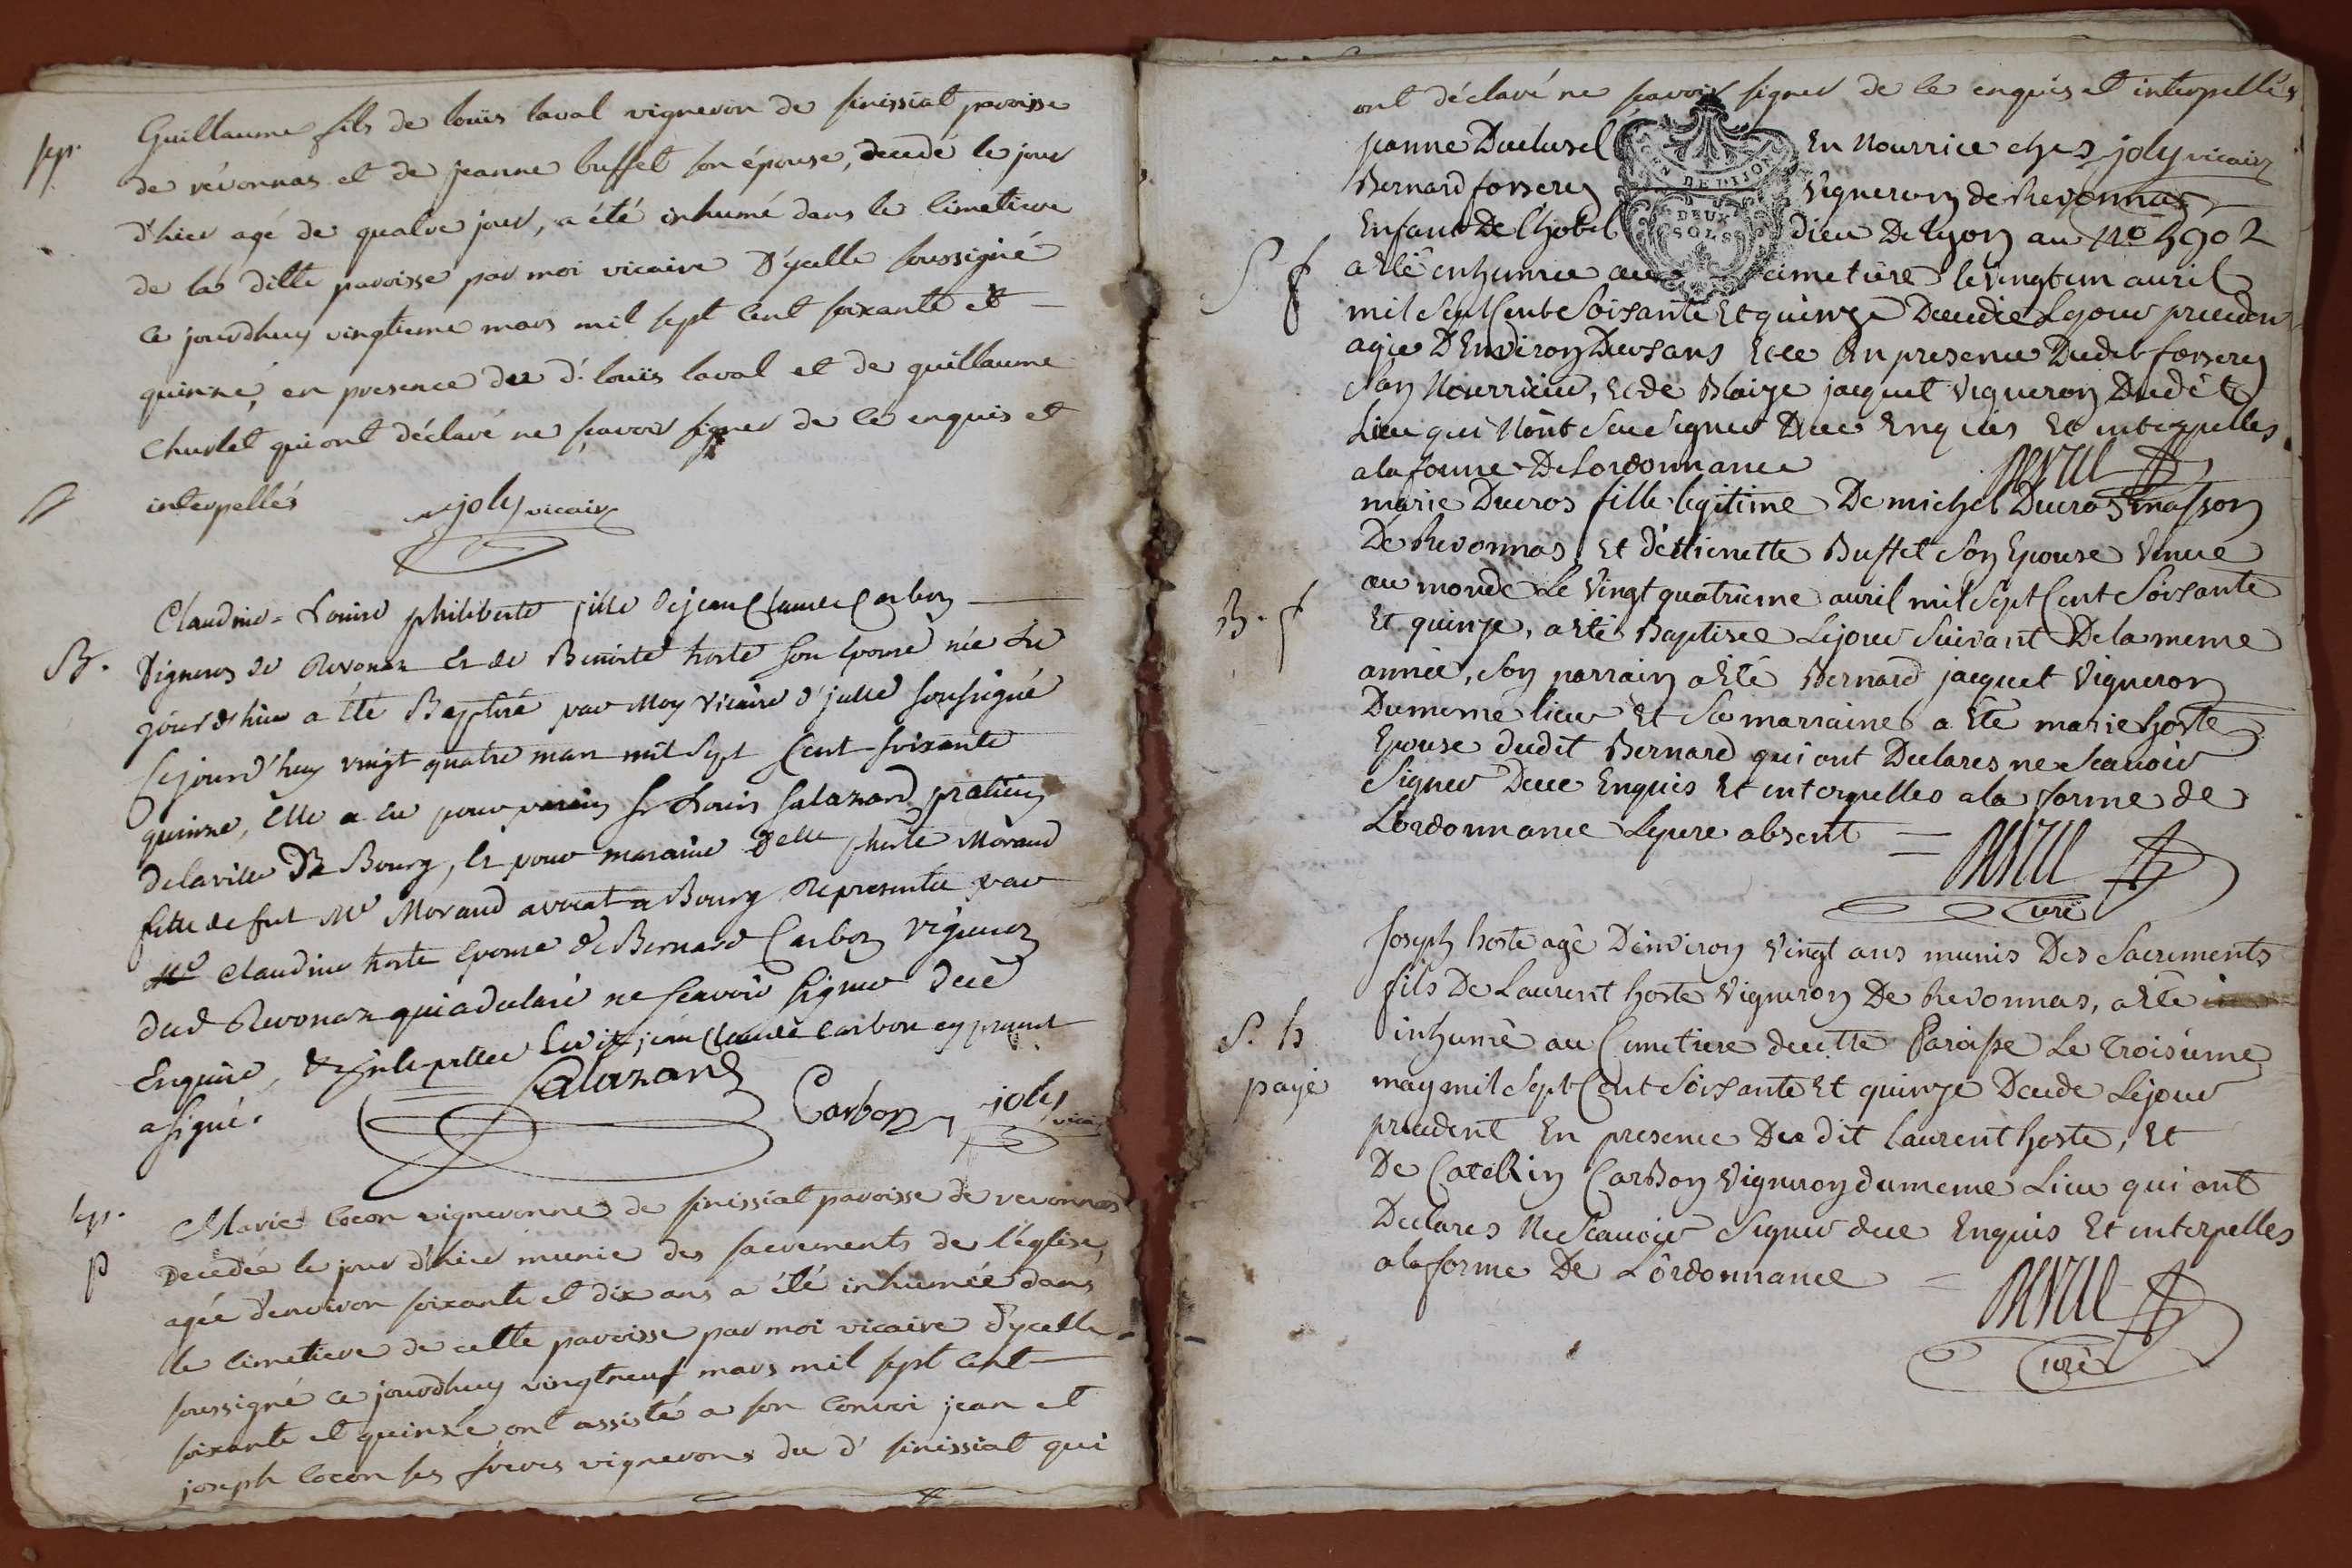 sep.
Guillaume fils de louis laval vigneron de sinissiat paroisse
de révonnas et de jeanne buffet son épouse, decedé le jour
d'hier agé de quatre jours, a été inhumé dans le cimetiere
de la ditte paroisse par moi vicaire d'ycelle soussigné
ce jourdhuy vingtieme mars mil sept cent soixante et
quinze, en presence du d. louis laval et de guillaume
Churlet qui ont déclaré ne sçavoir signer de ce enquis et
interpellés
joly vicaire
B.
Claudine-Louise philiberte fille de jean Claude Carbon
Vigneron de Revonaz et de Benoite hoste son epouse née du
jour d'hier a été Baptisé par Moy Vicaire d'jcelle soussigné
Cejourd'huy vingt quatre mars mil sept Cent soixante
quinze, elle a eu pour parain sr Louis Salazard praticien
delaville De Bourg, et pour maraine delle phirte Morand
fille de fut Mr Morand avocat a Bourg Representée par
Claudine hoste epouse de Bernard Carbon vigneron
dud Revonaz qui a declaré ne sçavoir signer dece
Enquise, et jnterpellée Ledit jean Claude Carbon en present
a signé.
Salazard
Carbon
joly vicaire
sep.
p
Marie cocon vigneronne de sinissiat paroisse de revonnas
Decedée le jour d'hier munie des sacrements de l'église,
agée d'environ soixante et dix ans a été inhumée dans
le cimetiere de cette paroisse par moi vicaire d'ycelle
soussigné ce jourdhuy vingtneuf mars mil sept cent
soixante et quinze ont assisté a son convoi jean et
joseph cocon ses freres vignerons du d' sinissiat qui
ont déclaré ne sçavoir signer de ce enquis et interpellés
joly vicaire
GEN DE DIJON
DEUX
SOLS
S f
jeanne Duclusel En Nourrice ches
Bernard forserey Vigneron de Revonnas
Enfant De l'hotel dieu De lyon au No 5902
a Eté enhumée au cimetiere le vingt un auril
mil Sept Cent Soisante Et quinze Decedée Le jour preceden
agée D'Environ Deus ans Et ce En presence Dudit forserey
Son Nourricier, Et de Blaize jacquet Vigneron Dudit
Lieu qui N'ont Sceu Signer Dece Enquis Et interpelles
a la forme De Lordonnance
B. f
marie Ducros fille legitime De michel Ducros masson
De Revonnas, Et d'etiennette Buffet Son Epouse Venue
au monde Le Vingt quatrieme auril mil Sept Cent Soisante
Et quinze, a Eté Baptisée Le jour Suivant De la meme
année, Son parrain a Eté Bernard jacquet Vigneron
Du meme lieu Et Sa marraine a Eté marie hoste
Epouse dudit Bernard qui ont Declares ne Scauoir
Signer Dece Enquis Et interpelles a la forme de
Lordonnance Le pere absent =
Curé
S. h
payé
Joseph hoste agé D'environ Vingt ans munis Des Sacrements
fils De Laurent hoste Vigneron De Revonnas, a Eté
inhumé au Cimetiere decette Paroisse Le Troisieme
may mil Sept Cent Soisante Et quinze Decede Le jour
precedent En presence Du dit laurent hoste, Et
De Catelin Carbon Vigneron du meme Lieu qui ont
Declares Ne Scauoir Signer dece Enquis Et interpelles
a la forme De L'ordonnance =
Curé